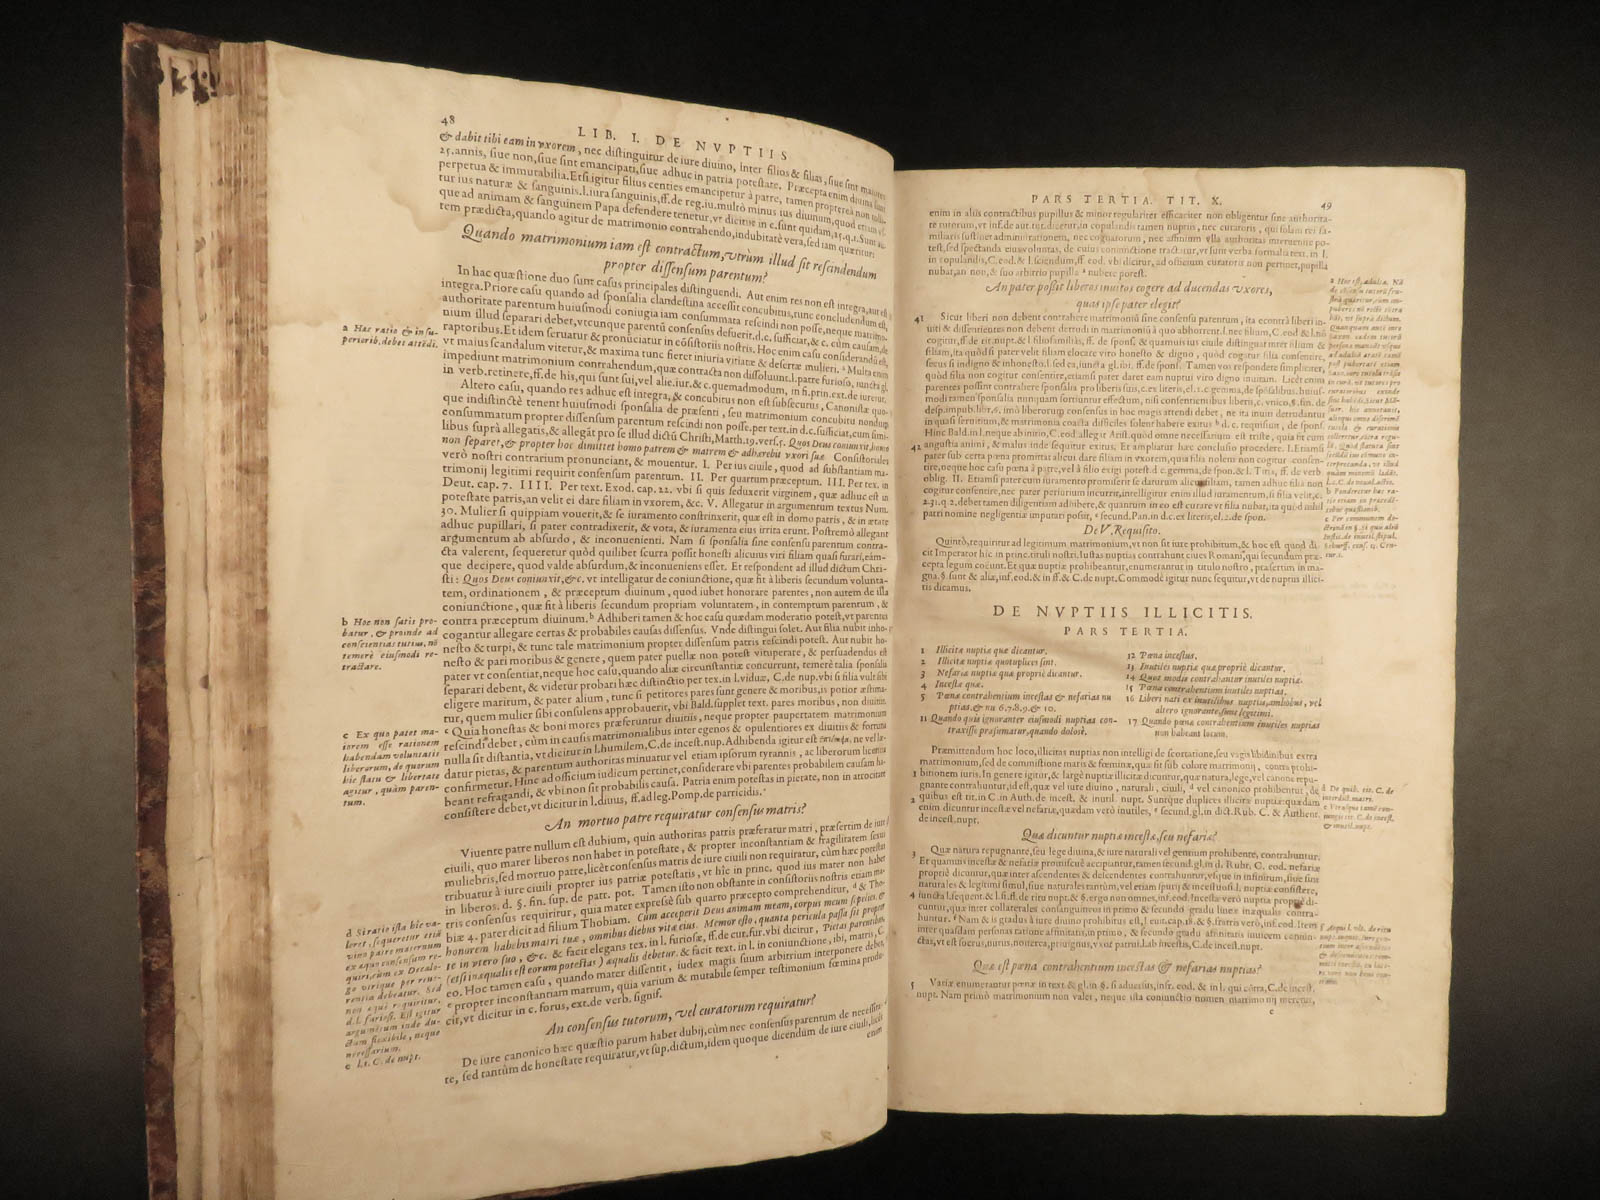 48
LIB. I. DE NVPTIIS
& dabit tibi eam in vxorem, nec distinguitur de iure diuino, inter filios & filias, siue sint maiores
25. annis, siue non, siue sint emancipati, siue adhuc in patria potestate. Præcepta enim diuina sunt
perpetua & immutabilia. Etsi igitur filius centies emancipetur à patre, tamen propterea non tolli-
tur ius naturæ & sanguinis. l. iura sanguinis, ff. de reg. iu. multò minus ius diuinum, quod etiam vs-
que ad animam & sanguinem Papa defendere tenetur, vt dicitur in c. sunt quidam, 25. q. 1. Sunt au-
tem prædicta, quando agitur de matrimonio contrahendo, indubitatè vera, sed iam quæritur:
Quando matrimonium iam est contractum, vtrùm illud sit rescindendum
propter dissensum parentum?
In hac quæstione duo sunt casus principales distinguendi. Aut enim res non est integra, aut est
integra. Priore casu quando ad sponsalia clandestina accessit concubitus, tunc concludendum est,
authoritate parentum huiusmodi coniugia iam consummata rescindi non posse, neque matrimo-
nium illud separari debet, vtcunque parentū consensus defuerit, d. c. sufficiat, & c. cùm causam, de
raptoribus. Et idem seruatur & pronūciatur in cōsistoriis nostris. Hoc enim casu considerandū est,
vt maius scandalum vitetur, & maxima tunc fieret iniuria vitiatæ & desertæ mulieri. a Multa enim
impediunt matrimonium contrahendum, quæ contracta non dissoluunt. l. patre furioso, iuncta gl.
in verb. retinere, ff. de his, qui sunt sui, vel alie. iur. & c. quemadmodum, in fi. prin. ext. de iureiur.
Altero casu, quando res adhuc est integra, & concubitus non est subsecutus, Canonistæ quo-
que indistinctè tenent huiusmodi sponsalia de præsenti, seu matrimonium concubitu nondum
consummatum propter dissensum parentum rescindi non posse. per text. in d. c. sufficiat, cum simi-
libus suprà allegatis, & allegāt pro se illud dictū Christi, Matth. 19. vers. 5. Quos Deus coniunxit, homo
non separet, & propter hoc dimittet homo patrem & matrem & adhærebit vxori suæ. Consistoriales
verò nostri contrarium pronunciant, & mouentur. I. Per ius ciuile, quod ad substantiam ma-
trimonij legitimi requirit consensum parentum. II. Per quartum præceptum. III. Per tex. in
Deut. cap. 7. IIII. Per text. Exod. cap. 22. vbi si quis seduxerit virginem, quæ adhuc est in
potestate patris, an velit ei dare filiam in vxorem, &c. V. Allegatur in argumentum textus Num.
30. Mulier si quippiam vouerit, & se iuramento constrinxerit, quæ est in domo patris, & in ætate
adhuc pupillari, si pater contradixerit, & vota, & iuramenta eius irrita erunt. Postremò allegant
argumentum ab absurdo, & inconuenienti. Nam si sponsalia sine consensu parentum contra-
cta valerent, sequeretur quòd quilibet scurra possit honesti alicuius viri filiam quasi furari, eám-
que decipere, quod valde absurdum, & inconueniens esset. Et respondent ad illud dictum Chri-
sti: Quos Deus coniunxit, &c. vt intelligatur de coniunctione, quæ fit à liberis secundum volunta-
tem, ordinationem, & præceptum diuinum, quod iubet honorare parentes, non autem de illa
coniunctione, quæ fit à liberis secundum propriam voluntatem, in contemptum parentum, &
contra præceptum diuinum. b Adhiberi tamen & hoc casu quædam moderatio potest, vt parentes
cogantur allegare certas & probabiles causas dissensus. Vnde distingui solet. Aut filia nubit inho-
nesto & turpi, & tunc tale matrimonium propter dissensum patris rescindi potest. Aut nubit ho-
nesto & pari moribus & genere, quem pater puellæ non potest vituperare, & persuadendus est
pater vt consentiat, neque hoc casu, quando aliæ circunstantiæ concurrunt, temerè talia sponsalia
separari debent, & videtur probari hæc distinctio per tex. in l. viduæ, C. de nup. vbi si filia vult sibi
eligere maritum, & pater alium, tunc si petitores pares sunt genere & moribus, is potior æstima-
tur, quem mulier sibi consulens approbauerit, vbi Bald. supplet text. pares moribus, non diuitiis.
c Quia honestas & boni mores præferuntur diuitiis, neque propter paupertatem matrimonium
rescindi debet, cùm in causis matrimonialibus inter egenos & opulentiores ex diuitiis & fortuna
nulla sit distantia, vt dicitur in l. humilem, C. de incest. nup. Adhibenda igitur est ἐπιείκεια, ne vel læ-
datur pietas, & parentum authoritas minuatur vel etiam ipsorum tyrannis, ac liberorum licentia
confirmetur. Hinc ad officium iudicum pertinet, considerare vbi parentes probabilem causam ha-
beant refragandi, & vbi non sit probabilis causa. Patria enim potestas in pietate, non in atrocitate
consistere debet, vt dicitur in l. diuus, ff. ad leg. Pomp. de parricidis.
An mortuo patre requiratur consensus matris?
Viuente patre nullum est dubium, quin authoritas patris præferatur matri, præsertim de iure
ciuili, quo mater liberos non habet in potestate, & propter inconstantiam & fragilitatem sexus
muliebris, sed mortuo patre, licèt consensus matris de iure ciuili non requiratur, cùm hæc potestas
tribuatur à iure ciuili propter ius patriæ potestatis, vt hîc in princ. quod ius mater non habet
in liberos. d. §. fin. sup. de patr. pot. Tamen isto non obstante in consistoriis nostris etiam ma-
tris consensus requiritur, quia mater expressè sub quarto præcepto comprehenditur, d & Tho-
biæ 4. pater dicit ad filium Thobiam. Cum acceperit Deus animam meam, corpus meum sepeli, &
honorem habebis matri tuæ, omnibus diebus vitæ eius. Memor esto, quanta pericula passa sit propter
te in vtero suo, &c. & facit elegans tex. in l. furiosæ, ff. de cur. fur. vbi dicitur, Pietas parentibus,
(etsi inæqualis est eorum potestas) æqualis debetur. & facit text. in l. in coniunctione, ibi, matris, C.
eo. Hoc tamen casu, quando mater dissentit, iudex magis suum arbitrium interponere debet,
e propter inconstantiam matrum, quia varium & mutabile semper testimonium fœmina produ-
cit, vt dicitur in c. forus, ext. de verb. signif.
An consensus tutorum, vel curatorum requiratur?
De iure canonico hæc quæstio parum habet dubij, cùm nec consensus parentum de necessita-
te, sed tantùm de honestate requiratur, vt sup. dictum, idem quoque dicendum de iure ciuili, licèt
enim
a Hæc ratio & in su-
periorib. debet attēdi.
b Hoc non satis pro-
batur, & proinde ad
conscientias tutius, nō
temerè eiusmodi re-
tractare.
c Ex quo patet ma-
iorem esse rationem
habendam voluntatis
liberorum, de quorum
hîc statu & libertate
agitur, quàm paren-
tum.
d Si ratio ista hîc va-
leret, sequeretur etiā
viuo patre maternum
ex æquo consensum re-
quiri, cùm ex Decalo-
go vtrique per reue-
rentia debeatur. Sed
non æquè requiritur,
d. l. furiosæ. Est igitur
argumentum inde du-
ctum flexibile, neque
necessarium.
e l. 1. C. de nupt.
PARS TERTIA. TIT. X.
49
enim in aliis contractibus pupillus & minor regulariter efficaciter non obligentur sine authorita-
te tutorum, vt inf. de aut. tut. dicetur, in copulandis tamen nuptiis, nec curatoris, qui solam rei fa-
miliaris sustinet administrationem, nec cognatorum, nec affinium vlla authoritas interuenire po-
test, sed spectanda eius voluntas, de cuius coniunctione tractatur, vt sunt verba formalia text. in l.
in copulandis, C. eod. & l. sciendum, ff. eod. vbi dicitur, ad officium curatoris non pertinet, pupilla
nubat, an non, & suo arbitrio pupilla a nubere potest.
An pater possit liberos inuitos cogere ad ducendas vxores,
quas ipse pater elegit?
41 Sicut liberi non debent contrahere matrimoniū sine consensu parentum, ita econtrà liberi in-
uiti & dissentientes non debent detrudi in matrimoniū à quo abhorrent. l. nec filium, C. eod & l. nō
cogitur, ff. de rit. nupt. & l. filiofamiliâs, ff. de spons. & quamuis ius ciuile distinguat inter filium &
filiam, ita quòd si pater velit filiam elocare viro honesto & digno, quòd cogitur filia consentire,
secus si indigno & inhonesto. l. sed ea, iuncta gl. ibi. ff. de spons. Tamen vos respondete simpliciter,
quòd filia non cogitur consentire, etiamsi pater daret eam nuptui viro digno inuitam. Licèt enim
parentes possint contrahere sponsalia pro liberis suis, c. ex literis, el. 2. c. gemma, de spōsalibus. huius-
modi tamen sponsalia nunquam sortiuntur effectum, nisi consentientibus liberis, c. vnico, §. fin. de
desp. impub. lib. 6. imò liberorum consensus in hoc magis attendi debet, ne ita inuiti detrudantur
in quasi seruitium, & matrimonia coacta difficiles solent habere exitus b d. c. requisiuit, de spons.
Hinc Bald. in l. neque ab initio, C. eod allegit Arist. quòd omne necessarium est triste, quia fit cum
42 angustia animi, & malus inde sequitur exitus. Et ampliatur hæc conclusio procedere. I. Etiamsi
pater sub certa pœna promittat alicui dare filiam in vxorem, tamen filia non cogitur consen-
tire, neque hoc casu pœna à patre, vel à filio exigi potest. d c. gemma, de spon. & l. Titia, ff. de verb.
oblig. II. Etiamsi pater cum iuramento promiserit se daturum alicui filiam, tamen adhuc filia nō
cogitur consentire, nec pater periurium incurrit, intelligitur enim illud iuramentum, si filia velit, c.
2. 31. q. 2. debet tamen diligentiam adhibere, & quantum in eo est curare vt filia nubat, ita quòd nihil
patri nomine negligentiæ imputari possit, c secund. Pan. in d. c. ex literis, el. 2. de spon.
De V. Requisito.
Quintò, requiritur ad legitimum matrimonium, vt non sit iure prohibitum, & hoc est quod di-
cit Imperator hîc in princ. tituli nostri. Iustas nuptias contrahunt ciues Romani, qui secundum præ-
cepta legum coëunt. Et quæ prohibeantur, enumerantur in titulo nostro, præsertim in ma-
gna. §. sunt & aliæ, inf. eod. & in ff. & C. de nupt. Commodè igitur nunc sequitur, vt de nuptiis illici-
tis dicamus.
DE NVPTIIS ILLICITIS.
PARS TERTIA.
1 Illicitæ nuptiæ quæ dicantur.
2 Illicitæ nuptiæ quotuplices sint.
3 Nefariæ nuptiæ quæ propriè dicantur.
4 Incestæ quæ.
5 Pœna contrahentium incestas & nefarias nu
ptias. & nu 6. 7. 8. 9. & 10.
11 Quando quis ignoranter eiusmodi nuptias con-
traxisse præsumatur, quando dolosè.
12 Pœna incestus.
13 Inutiles nuptiæ quæ propriè dicantur.
14 Quot modis contrahantur inutiles nuptiæ.
15 Pœna contrahentium inutiles nuptias.
16 Liberi nati ex inutilibus nuptiis, ambobus, vel
altero ignorante, sunt legitimi.
17 Quando pœna contrahentium inutiles nuptias
non habeat locum.
Præmittendum hoc loco, illicitas nuptias non intelligi de scortatione, seu vagis libidinibus extra
matrimonium, sed de commistione maris & fœminæ, quæ fit sub colore matrimonij, contra prohi-
1 bitionem iuris. In genere igitur, & largè nuptiæ illicitæ dicuntur, quæ natura, lege, vel canone repu-
gnante contrahuntur, id est, quæ vel iure diuino, naturali, ciuili, d vel canonico prohibentur, de
2 quibus est tit. in C. in Auth. de incest. & inutil. nupt. Suntque duplices illicitæ nuptiæ: quædam
enim dicuntur incestæ vel nefariæ, quædam verò inutiles, e secund. gl. in dict. Rub. C. & Authent.
de incest. nupt.
Quæ dicuntur nuptiæ incestæ, seu nefariæ?
3 Quæ natura repugnante, seu lege diuina, & iure naturali vel gentium prohibente, contrahuntur.
Et quamuis incestæ & nefariæ promiscuè accipiantur, tamen secund. gl. in d. Rubr. C. eod. nefariæ
propriè dicuntur, quæ inter ascendentes & descendentes contrahuntur, vsque in infinitum, siue sint
naturales & legitimi simul, siue naturales tantùm, vel etiam spurij & incestuosi. l. nuptiæ consistere,
4 iuncta l. sequent. & l. si. ff. de ritu nupt. & §. ergo non omnes, inf. eod. Incestæ verò nuptiæ propriè di-
cuntur, quæ inter collaterales consanguineos in primo & secundo gradu lineæ inæqualis contra-
huntur. f Nam & is gradus à iure diuino prohibitus est, Leuit. cap. 18. & §. fratris verò, inf. eod. Item
inter quasdam personas ratione affinitatis, in primo, & secundo gradu affinitatis inuicem coniun-
ctas, vt est socrus, nurus, nouerca, priuignus, vxor patrui. l. ab incestis, C. de incest. nupt.
Quæ est pœna contrahentium incestas & nefarias nuptias?
5 Variæ enumerantur pœnæ in text & gl. in §. si aduersus, infr. eod. & in l. qui cōtra, C. de incest.
nupt. Nam primò matrimonium non valet, neque ista coniunctio nomen matrimonij meretur,
c
a Hoc est, adulta. Nā
b Ponderetur hæc ra-
c Per communem do-
d De quib. tit. C. de
interdict. matri.
e Vtrasque tamē con-
iungit tit. C. de incest.
& inutil. nupt.